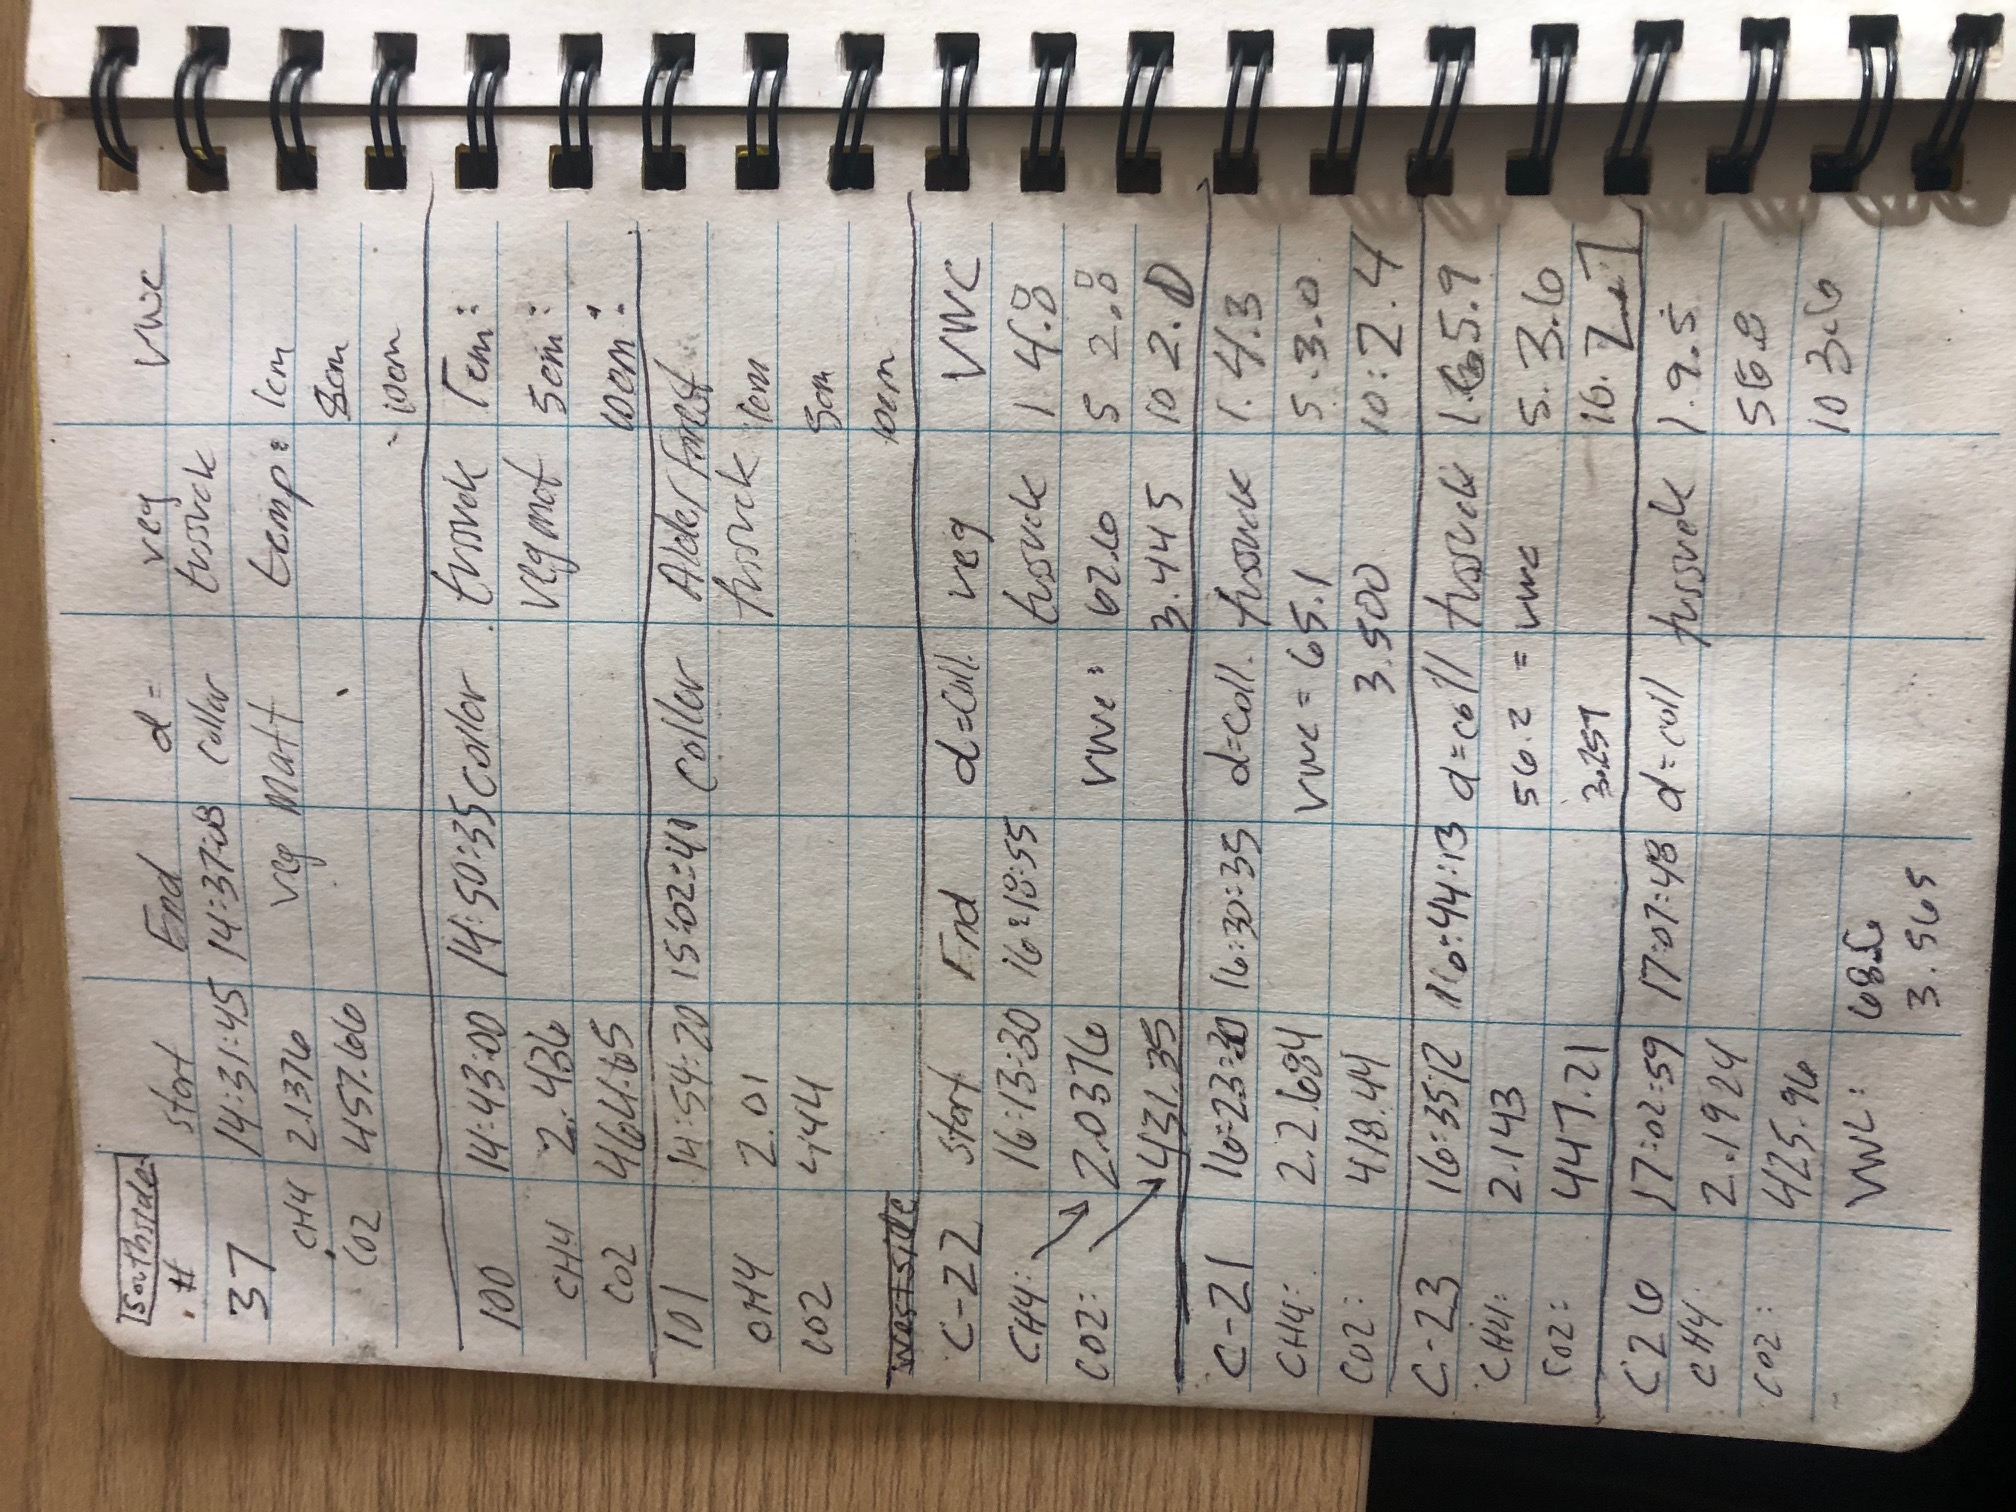 Southside
# start End d= veg VWC
37 14:31:45 14:37:08 collar tussuck
CH4 2.1376 veg Matt temp: 1cm
CO2 457.66 5cm
10cm
100 14:43:00 14:50:35 collar tussuck 1cm:
CH4 2.436 veg mat 5cm:
CO2 464.65 10cm:
101 14:54:20 15:02:41 collar Alder Forest
CH4 2.01 tussuck 1cm
CO2 444 5cm
10cm
Westside
C-22 start End d=coll. veg VWC
CH4: 16:13:30 16:18:55 tussuck 1 4.8
CO2: 2.0376 VWC: 62.6 5 2.8
431.35 3.445 10 2.0
C-21 16:23:30 16:30:35 d=coll. tussuck 1. 4.3
CH4: 2.2684 VWC = 65.1 5.3.0
CO2: 418.44 3.500 10:2.4
C-23 16:35:12 16:44:13 d=coll tussuck 1. 5.9
CH4: 2.143 56.2 = VWC 5. 3.6
CO2: 447.21 3.257 10. 2.7
C26 17:02:59 17:07:48 d=coll tussuck 1.9.5
CH4 2.1924
CO2: 425.96 10 3.6
VWC: 68.6
3.565